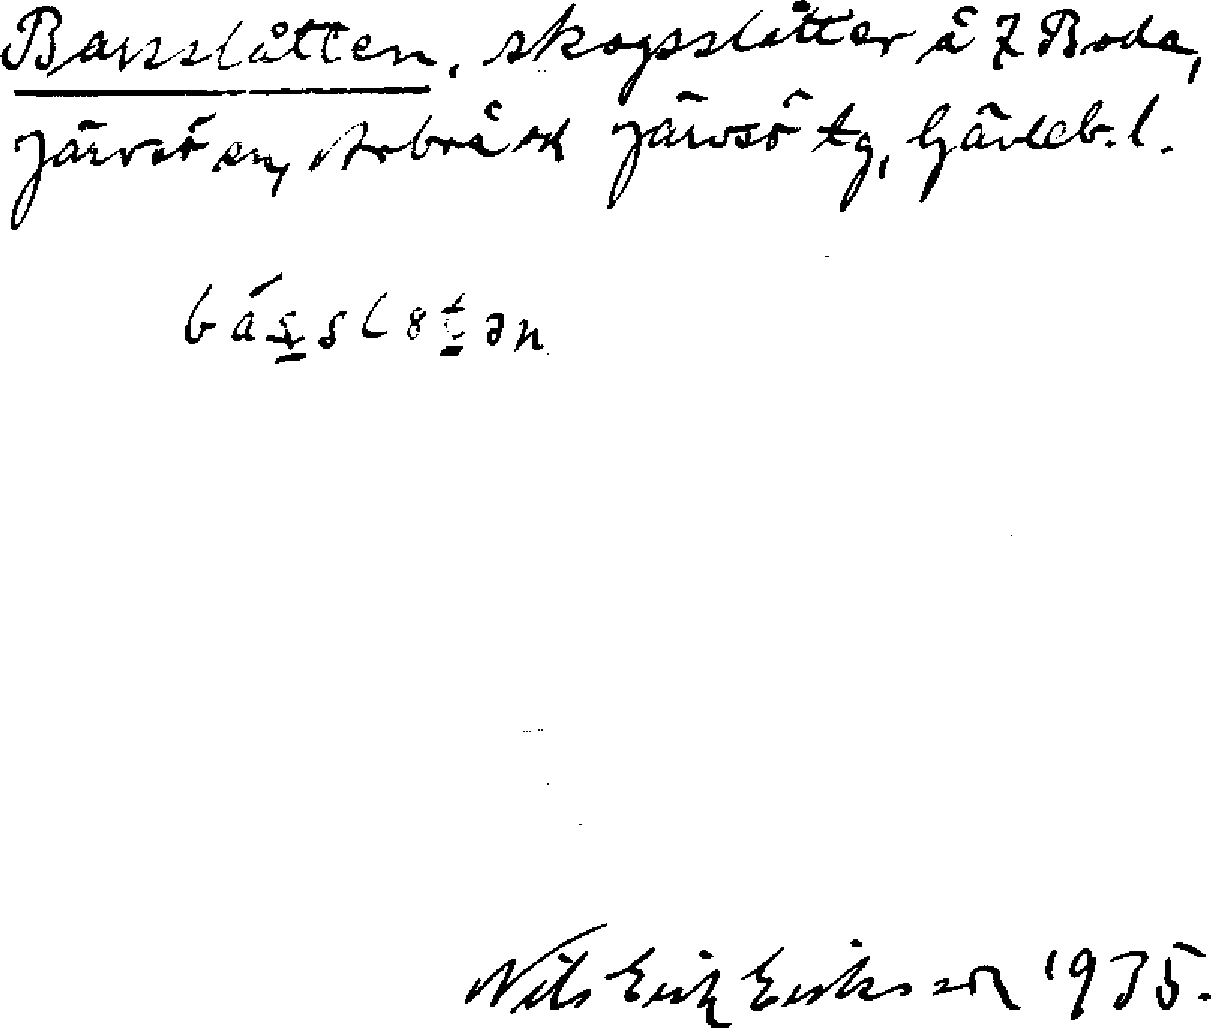 Barsslåtten, skogsslåtter å 7 Boda,
Järvsö sn, Arbrå ok Järvsö tg, Gävleb. l.
Nils Erik Eriksson 1935.